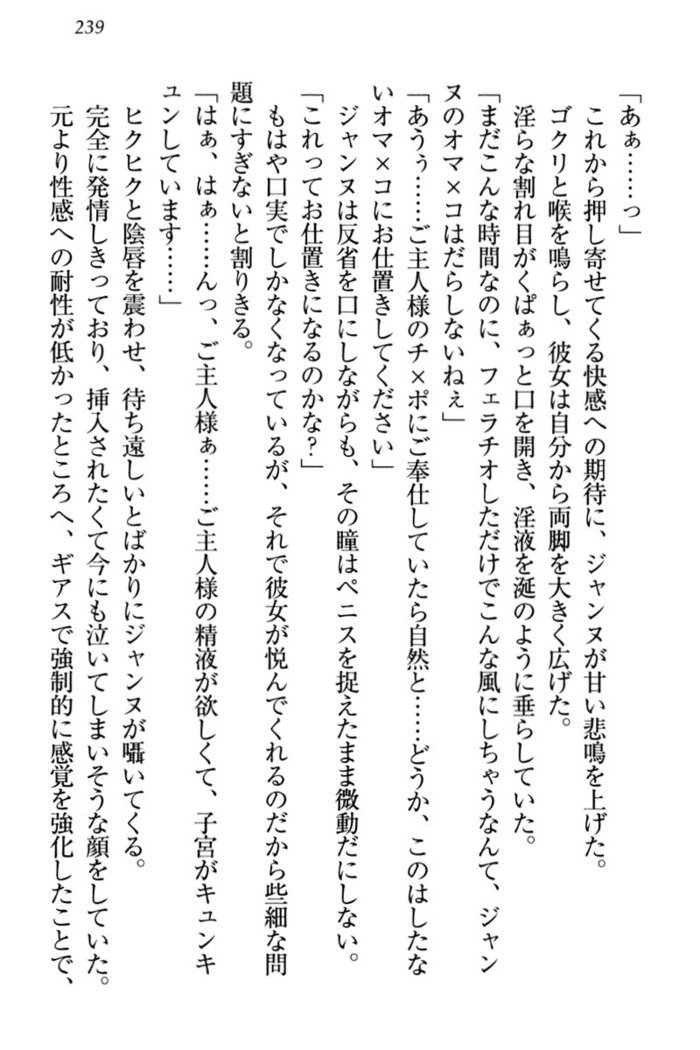 239
「あぁ……っ」
これから押し寄せてくる快感への期待に、ジャンヌが甘い悲鳴を上げた。
ゴクリと喉を鳴らし、彼女は自分から両脚を大きく広げた。
淫らな割れ目がくぱぁっと口を開き、淫液を涎のように垂らしていた。
「まだこんな時間なのに、フェラチオしただけでこんな風にしちゃうなんて、ジャン
ヌのオマ×コはだらしないねぇ」
「あうぅ……ご主人様のチ×ポにご奉仕していたら自然と……どうか、このはしたな
いオマ×コにお仕置きしてください」
ジャンヌは反省を口にしながらも、その瞳はペニスを捉えたまま微動だにしない。
「これってお仕置きになるのかな？」
もはや口実でしかなくなっているが、それで彼女が悦んでくれるのだから些細な問
題にすぎないと割りきる。
「はぁ、はぁ……んっ、ご主人様ぁ……ご主人様の精液が欲しくて、子宮がキュンキ
ュンしています……」
ヒクヒクと陰唇を震わせ、待ち遠しいとばかりにジャンヌが囁いてくる。
完全に発情しきっており、挿入されたくて今にも泣いてしまいそうな顔をしていた。
元より性感への耐性が低かったところへ、ギアスで強制的に感覚を強化したことで、